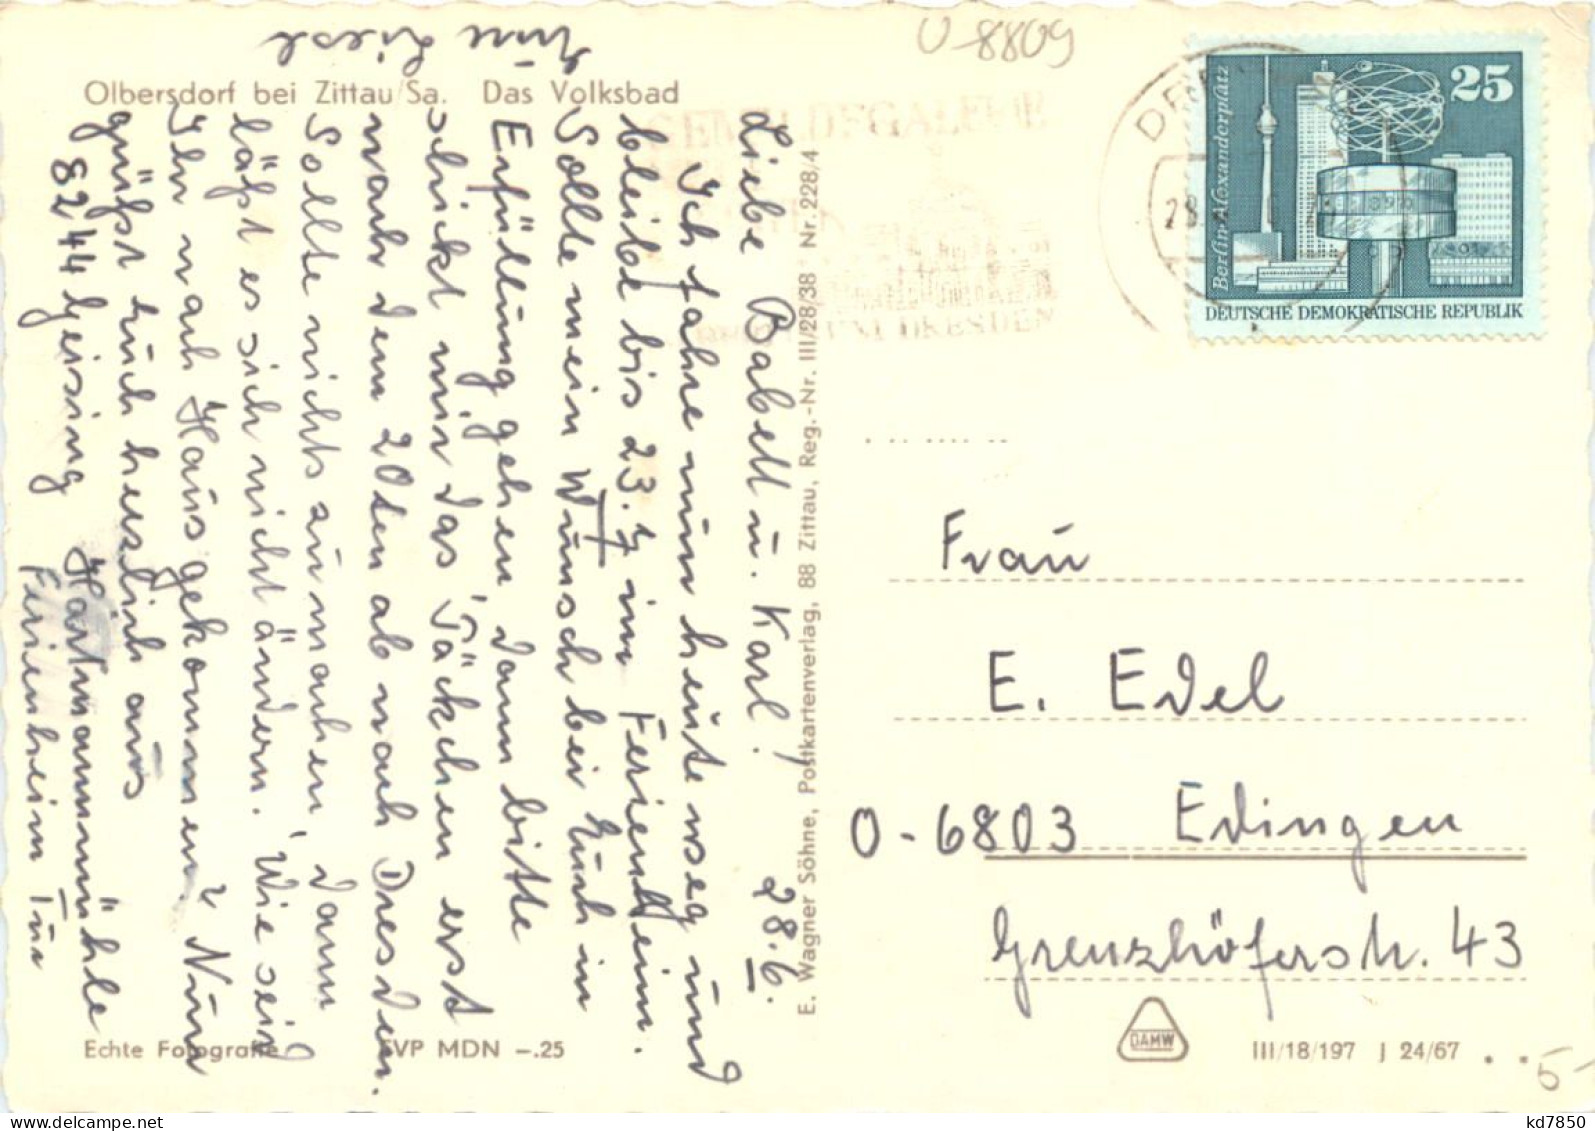 U-8809
Olbersdorf bei Zittau/Sa. Das Volksbad
Liebe Babett u. Karl! 28.6.
Ich fahre nun heute weg und
bleibe bis 23.7 im Ferienheim.
Sollte mein Wunsch bei Euch in
Erfüllung gehen dann bitte
schickt mir das "Päckchen erst
nach dem 20ten ab nach Dresden.
Sollte nichts zu machen, dann
läßt es sich nicht ändern. "Wie seid
Ihr nach Haus gekommen." Nun
grüßt Euch herzlich aus
8244 Geising Hartmannmühle
Ferienheim
Eure Liesl
E. Wagner Söhne, Postkartenverlag, 88 Zittau, Reg.-Nr. III/28/38 Nr. 228/4
Echte Fotografie EVP MDN -.25
GEMÄLDEGALERIE
DRESDEN
28.
25
Berlin-Alexanderplatz
DEUTSCHE DEMOKRATISCHE REPUBLIK
Frau
E. Edel
O-6803 Edingen
Grenzhöferstr. 43
DAMW
III/18/197 J 24/67
5-
kd7850